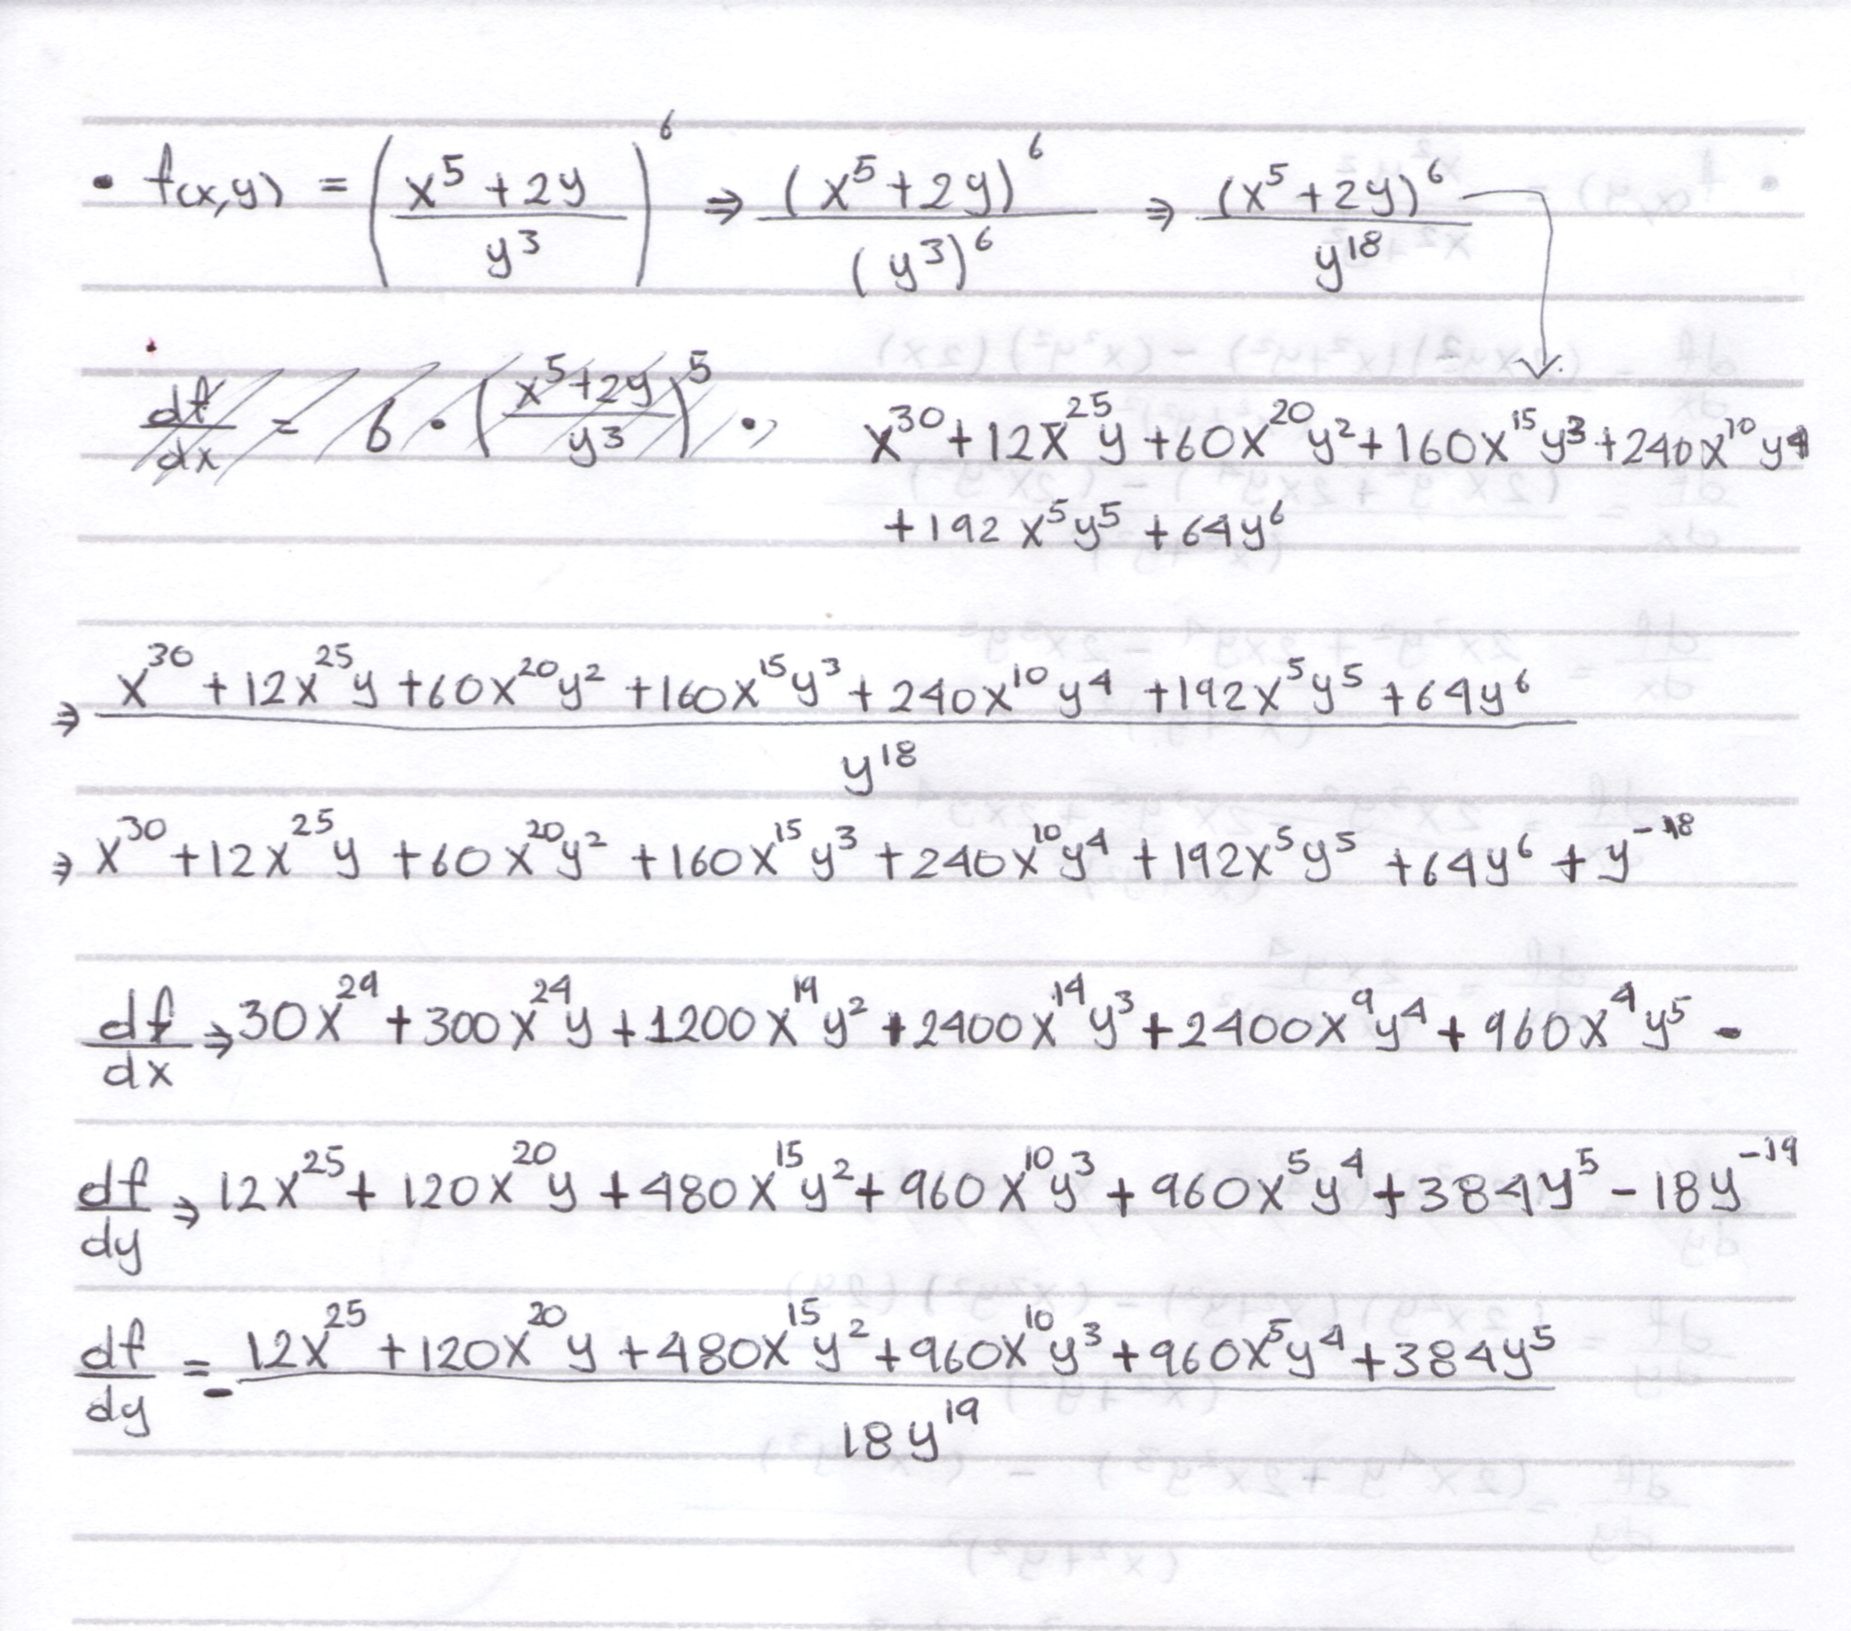 • f(x,y) = ((x^5 + 2y)/(y^3))^6 ⇒ (x^5 + 2y)^6/(y^3)^6 ⇒ (x^5 + 2y)^6/y^18
df/dx = 6 · ((x^5 + 2y)/(y^3))^5 ·
x^30 + 12x^25y + 60x^20y^2 + 160x^15y^3 + 240x^10y^4
+ 192x^5y^5 + 64y^6
⇒ (x^30 + 12x^25y + 60x^20y^2 + 160x^15y^3 + 240x^10y^4 + 192x^5y^5 + 64y^6)/y^18
⇒ x^30 + 12x^25y + 60x^20y^2 + 160x^15y^3 + 240x^10y^4 + 192x^5y^5 + 64y^6 + y^-18
df/dx ⇒ 30x^29 + 300x^24y + 1200x^19y^2 + 2400x^14y^3 + 2400x^9y^4 + 960x^4y^5 -
df/dy ⇒ 12x^25 + 120x^20y + 480x^15y^2 + 960x^10y^3 + 960x^5y^4 + 384y^5 - 18y^-19
df/dy = - (12x^25 + 120x^20y + 480x^15y^2 + 960x^10y^3 + 960x^5y^4 + 384y^5)/18y^19